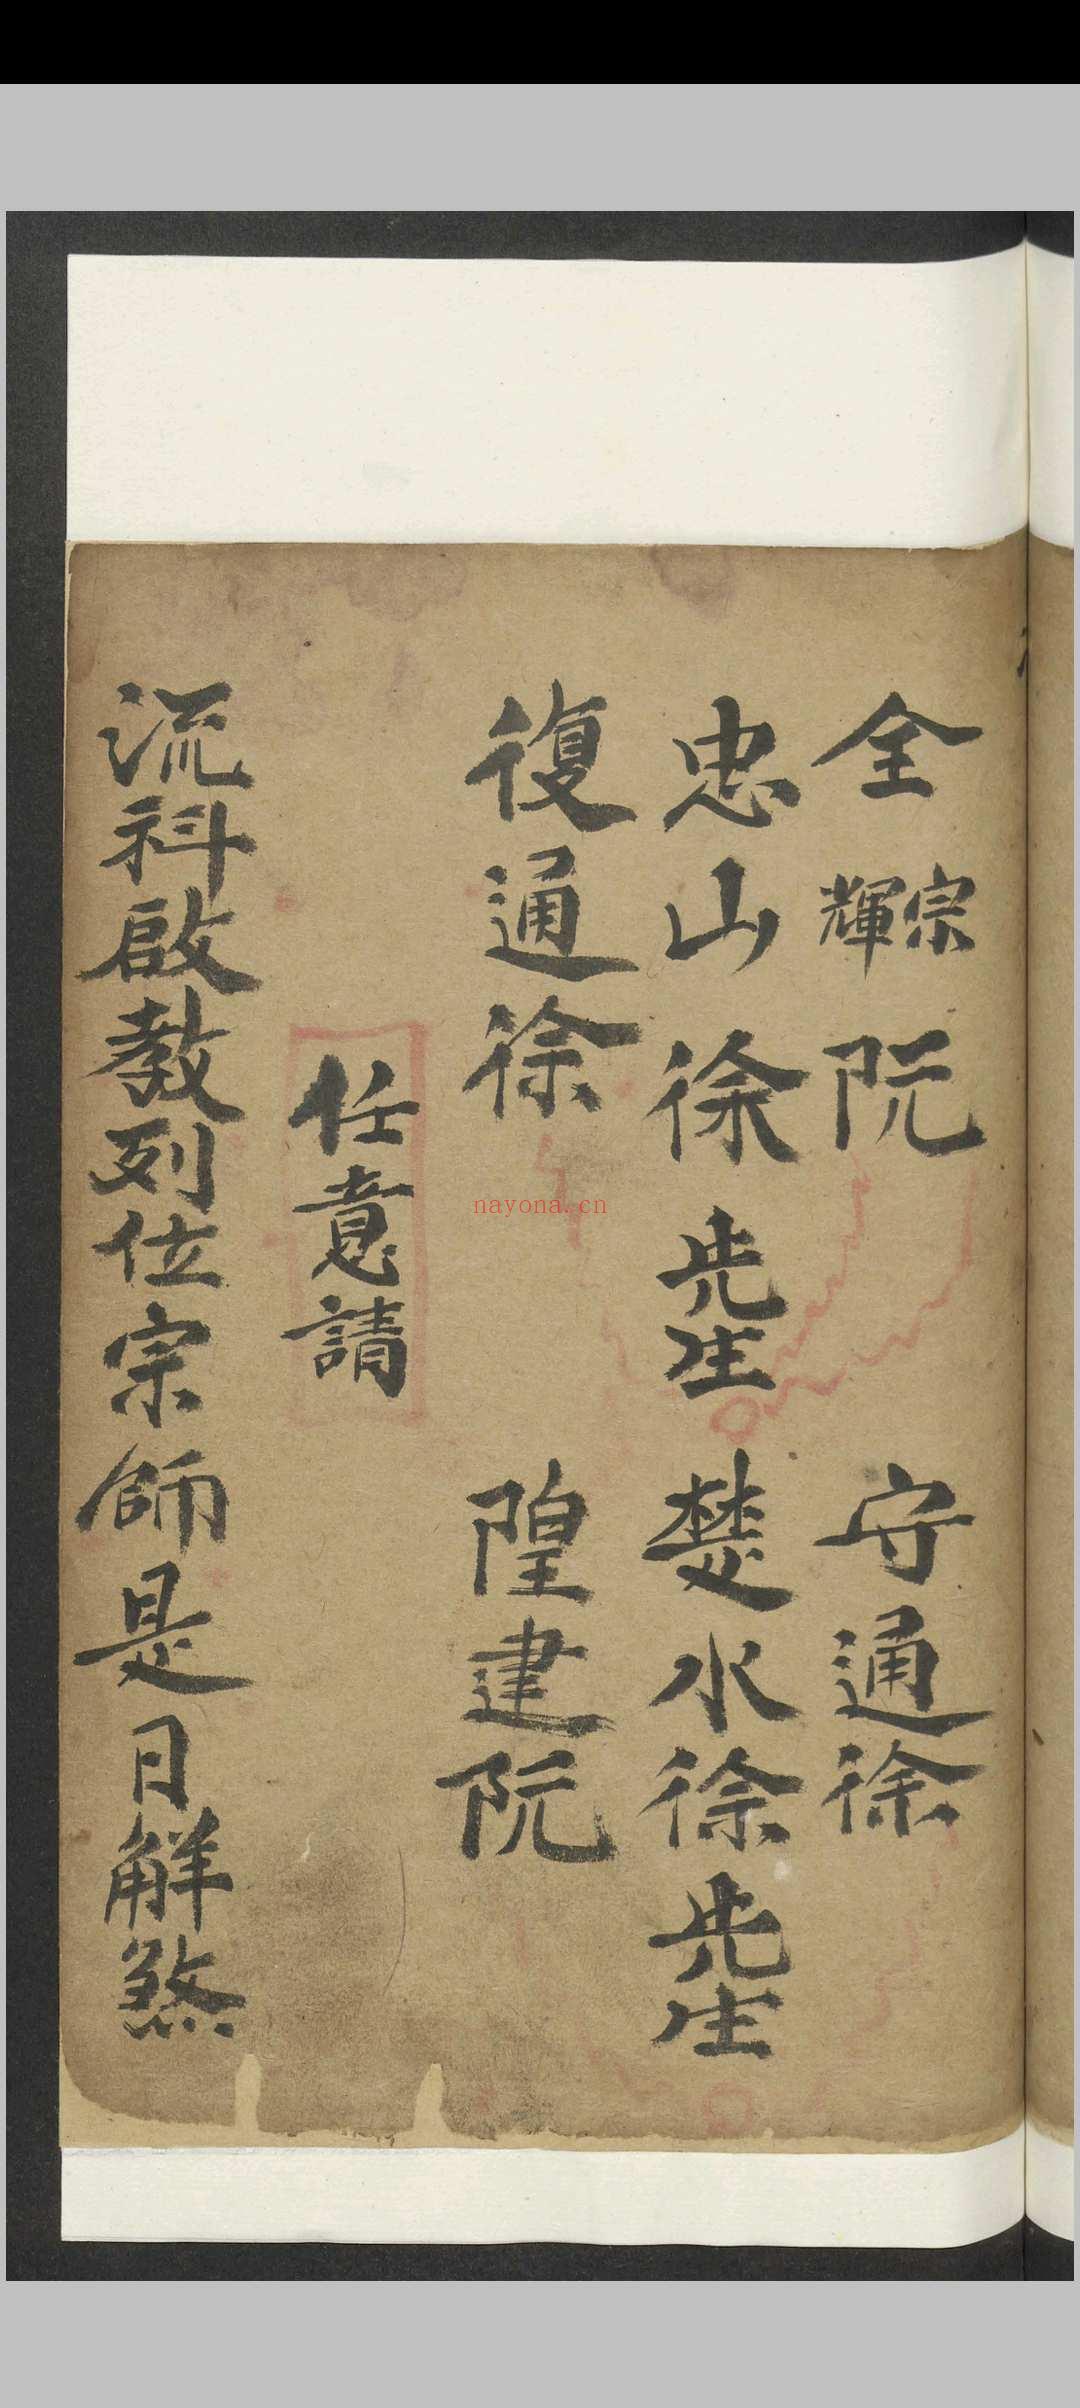 全宗輝阮　守通徐
忠山徐先生　楚水徐先生
復通徐　隍建阮
任意請
流科啟教列位宗師是日解煞
nayona.cn